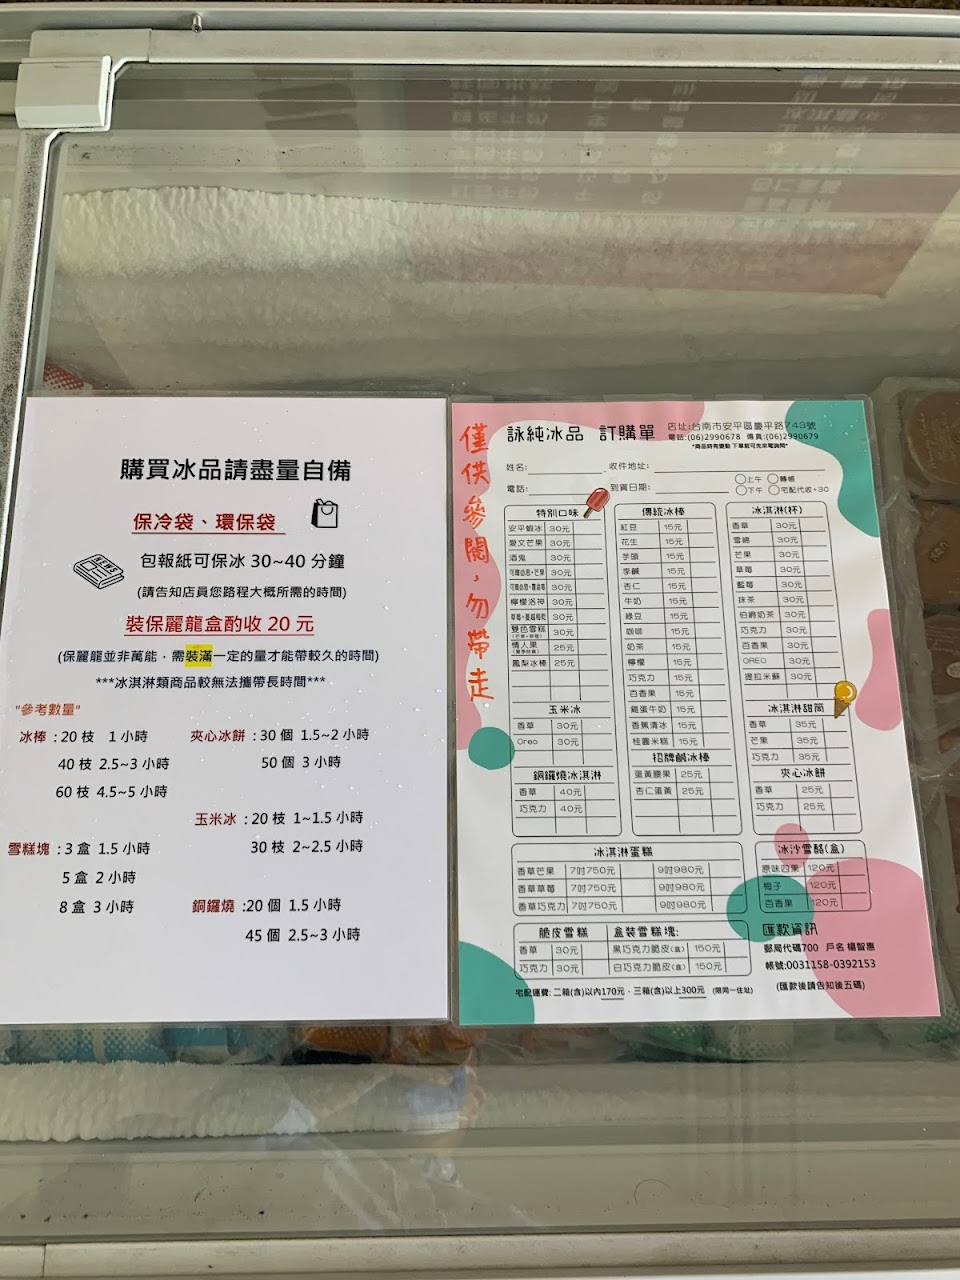 購買冰品請盡量自備
保冷袋、環保袋
NEWS
包報紙可保冰 30~40 分鐘
(請告知店員您路程大概所需的時間)
裝保麗龍盒酌收 20 元
(保麗龍並非萬能，需裝滿一定的量才能帶較久的時間)
***冰淇淋類商品較無法攜帶長時間***
"參考數量"
冰棒 : 20 枝 1 小時
40 枝 2.5~3 小時
60 枝 4.5~5 小時
夾心冰餅 : 30 個 1.5~2 小時
50 個 3 小時
玉米冰 : 20 枝 1~1.5 小時
30 枝 2~2.5 小時
雪糕塊 : 3 盒 1.5 小時
5 盒 2 小時
8 盒 3 小時
銅鑼燒 :20 個 1.5 小時
45 個 2.5~3 小時
僅供參閱，勿帶走
詠純冰品 訂購單
店址:台南市安平區慶平路743號
電話:(06)2990678 傳真:(06)2990679
*商品時有變動 下單前可先來電詢問*
姓名: 收件地址:
電話: 到貨日期:
上午 轉帳
下午 宅配代收+30
特別口味
安平蝦冰 30元
愛文芒果 30元
酒鬼 30元
可爾必思+芒果 30元
30元
檸檬洛神 30元
30元
雙色雪糕 30元
情人果 25元
鳳梨冰棒 25元
玉米冰
香草 30元
Oreo 30元
銅鑼燒冰淇淋
香草 40元
巧克力 40元
傳統冰棒
紅豆 15元
花生 15元
芋頭 15元
李鹹 15元
杏仁 15元
牛奶 15元
綠豆 15元
咖啡 15元
奶茶 15元
檸檬 15元
巧克力 15元
百香果 15元
雞蛋牛奶 15元
香蕉清冰 15元
桂圓米糕 15元
招牌鹹冰棒
蛋黃腰果 25元
杏仁蛋黃 25元
冰淇淋(杯)
香草 30元
雪綿 30元
芒果 30元
草莓 30元
藍莓 30元
抹茶 30元
伯爵奶茶 30元
巧克力 30元
百香果 30元
OREO 30元
提拉米蘇 30元
冰淇淋甜筒
香草 35元
芒果 35元
巧克力 35元
夾心冰餅
香草 25元
巧克力 25元
冰淇淋蛋糕
香草芒果 7吋750元 9吋980元
香草草莓 7吋750元 9吋980元
香草巧克力 7吋750元 9吋980元
冰沙雪酪(盒)
原味四果 120元
梅子 120元
百香果 120元
脆皮雪糕
香草 30元
巧克力 30元
盒裝雪糕塊:
黑巧克力脆皮(盒) 150元
白巧克力脆皮(盒) 150元
匯款資訊
郵局代碼700 戶名 楊智惠
帳號:0031158-0392153
(匯款後請告知後五碼)
宅配運費: 二箱(含)以內170元，三箱(含)以上300元 (限同一住址)